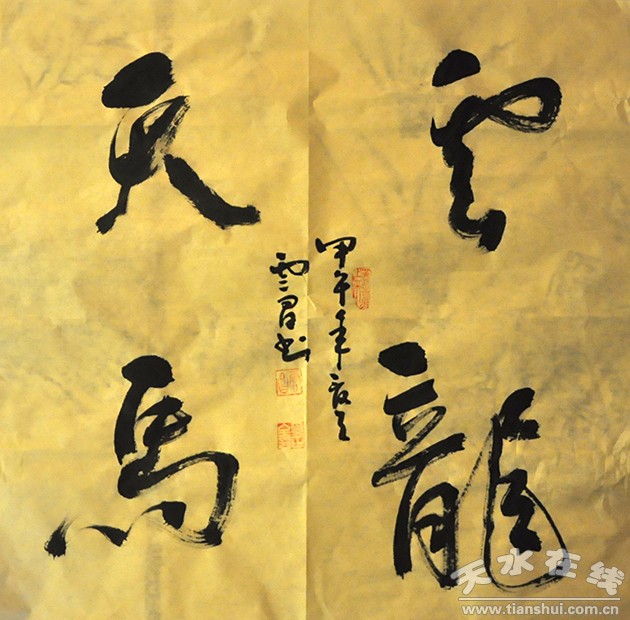 雲龍
天馬
甲午年夏
書
天水在线
www.tianshui.com.cn